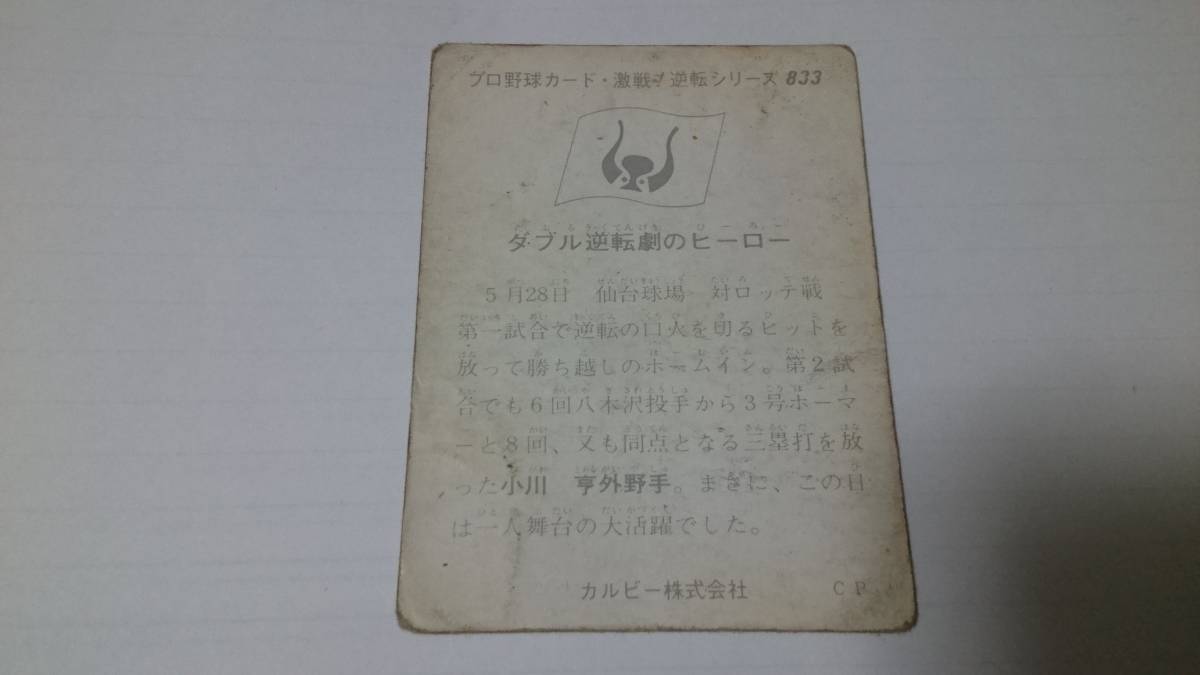 プロ野球カード・激戦!逆転シリーズ 833
ダブル逆転劇のヒーロー
5月28日 仙台球場 対ロッテ戦
第一試合で逆転の口火を切るヒットを
放って勝ち越しのホームイン。第2試
合でも6回八木沢投手から3号ホーマ
ーと8回、又も同点となる三塁打を放
った小川 亨外野手。まさに、この日
は一人舞台の大活躍でした。
カルビー株式会社 C P